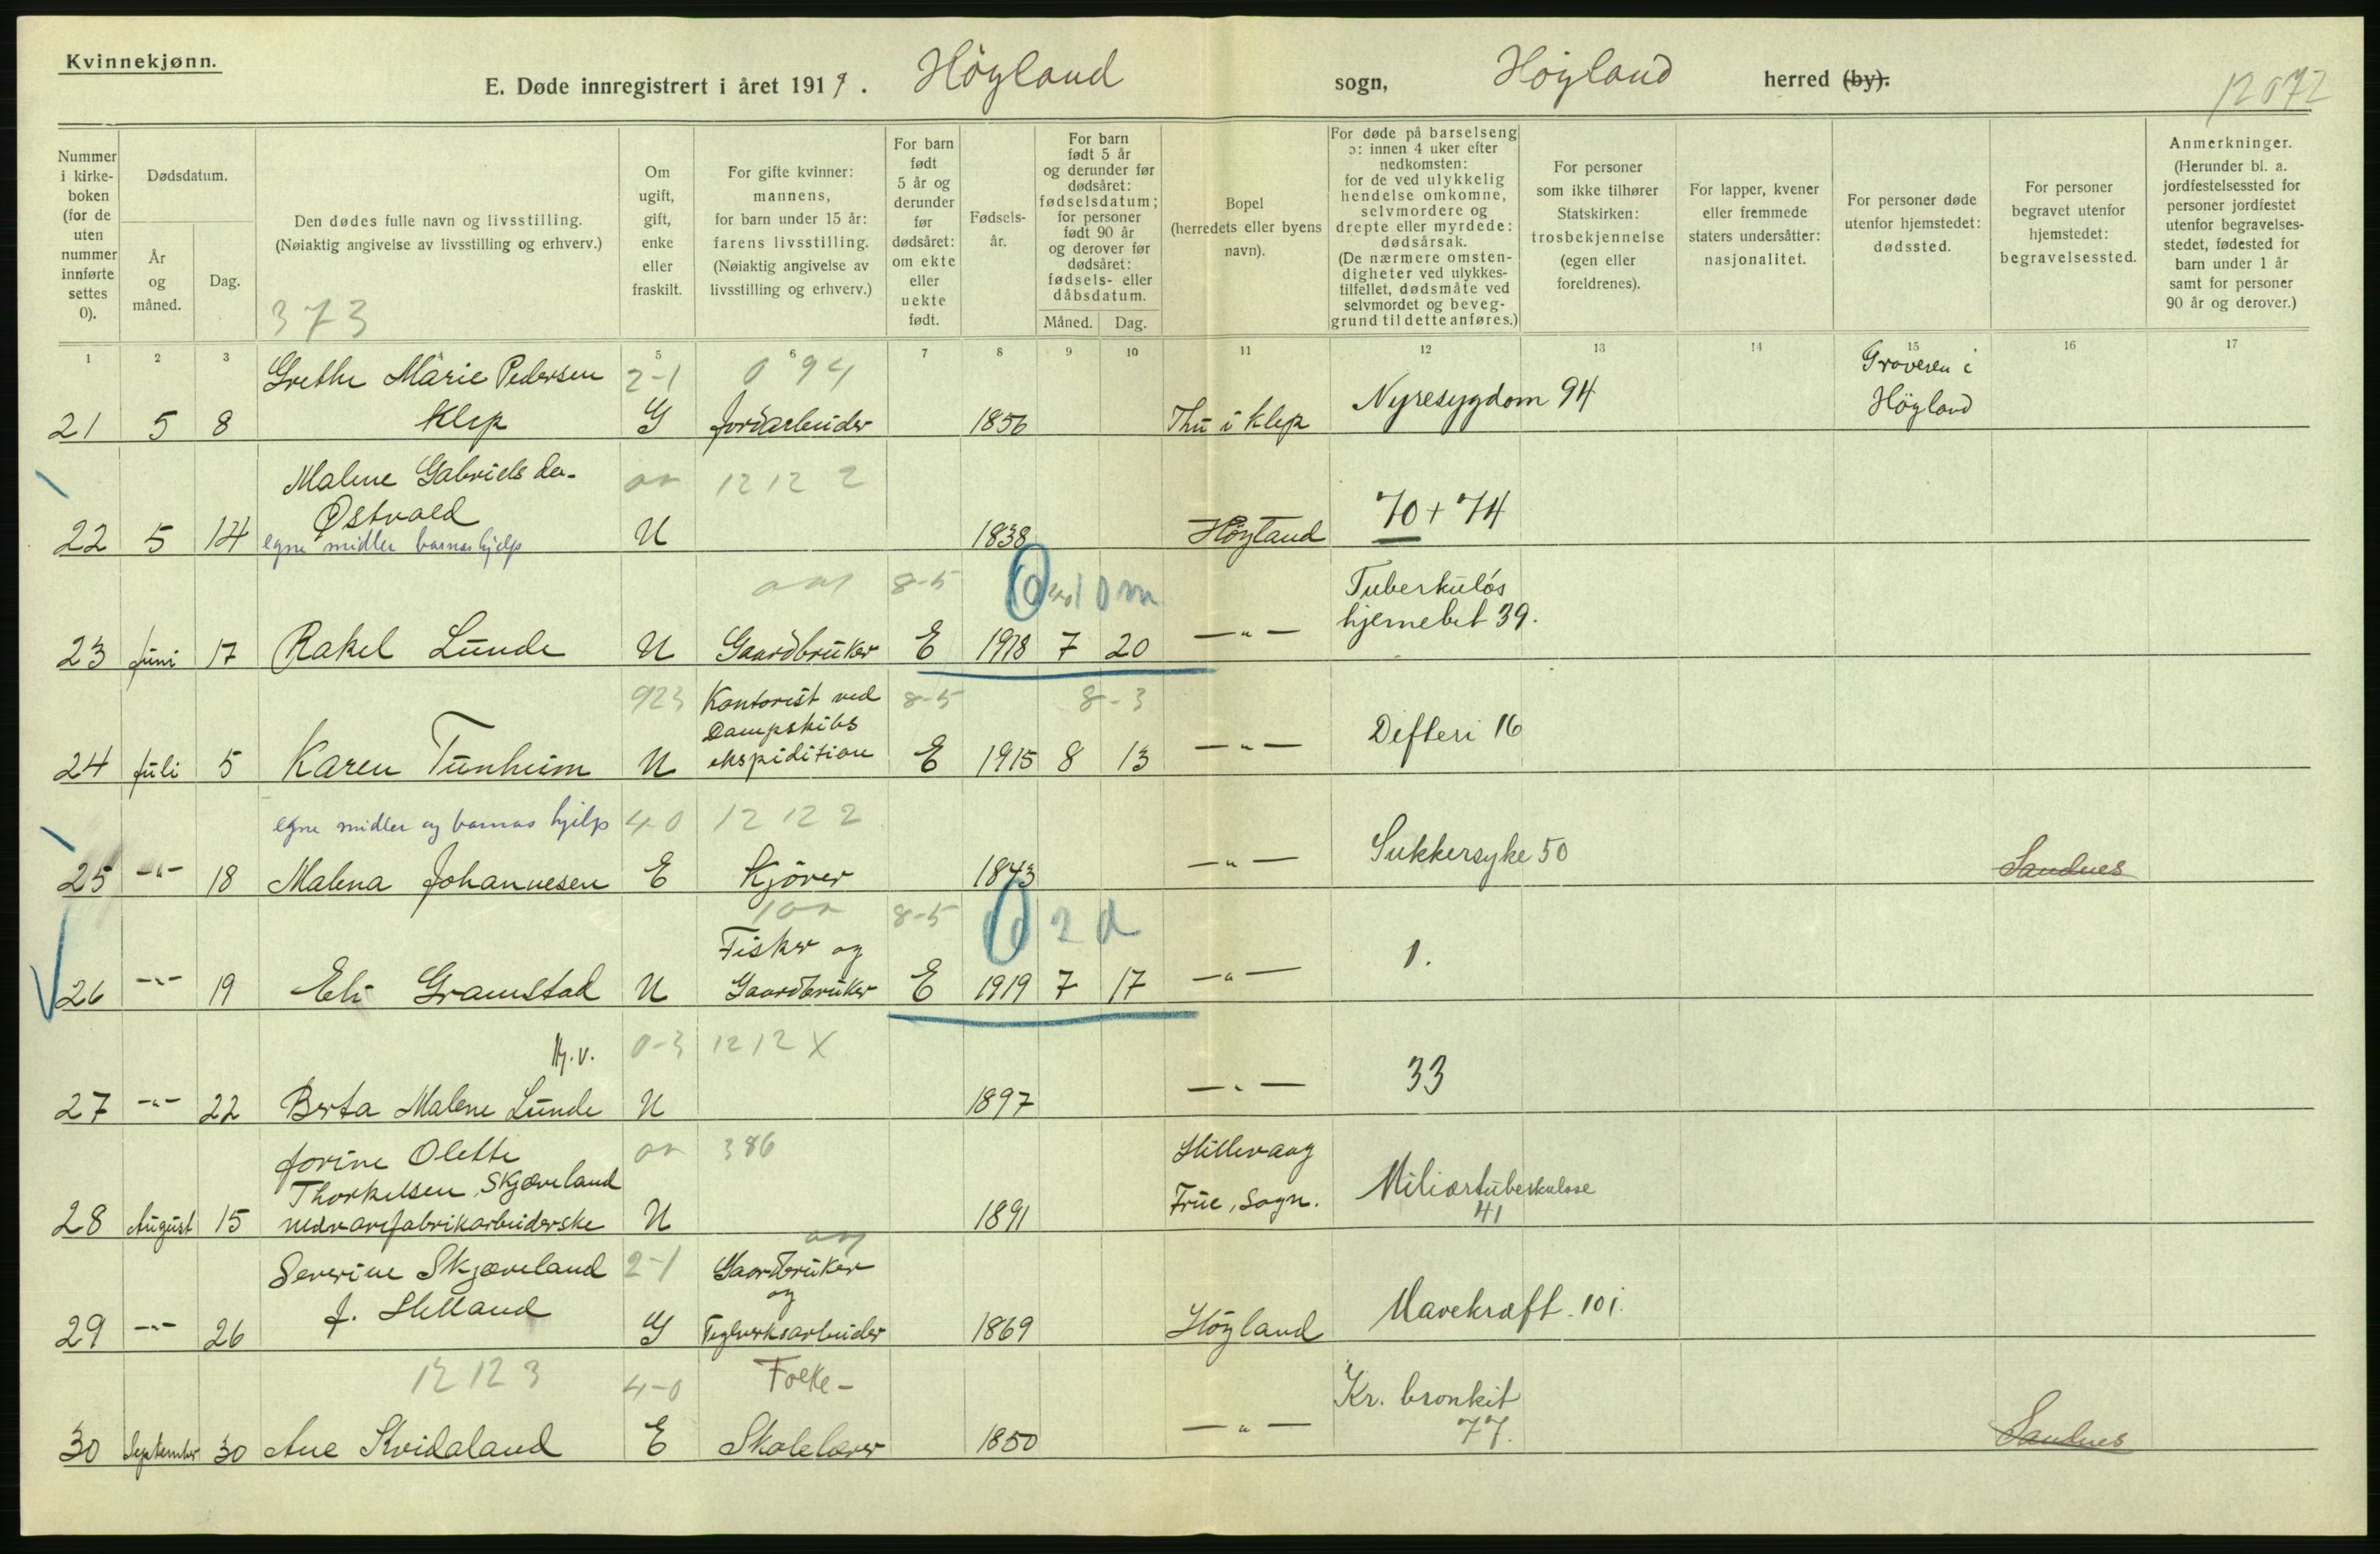 Kvinnekjønn.
E. Døde innregistrert i året 1919. Höyland sogn, Höyland herred (by).
12072
Nummer i kirke-boken (for de uten nummer innførte settes 0).
Dødsdatum.
År og måned.
Dag.
Den dødes fulle navn og livsstilling.
(Nøiaktig angivelse av livsstilling og erhverv.)
373
Om ugift, gift, enke eller fraskilt.
For gifte kvinner: mannens, for barn under 15 år: farens livsstilling. (Nøiaktig angivelse av livsstilling og erhverv.)
For barn født 5 år og derunder før dødsåret: om ekte eller uekte født.
Fødsels-år.
For barn født 5 år og derunder før dødsåret: fødselsdatum; for personer født 90 år og derover før dødsåret: fødsels- eller dåbsdatum.
Måned. Dag.
Bopel (herredets eller byens navn).
For døde på barselseng ɔ: innen 4 uker efter nedkomsten: for de ved ulykkelig hendelse omkomne, selvmordere og drepte eller myrdede: dødsårsak. (De nærmere omsten-digheter ved ulykkes-tilfellet, dødsmåte ved selvmordet og beveg-grund til dette anføres.)
For personer som ikke tilhører Statskirken: trosbekjennelse (egen eller foreldrenes).
For lapper, kvener eller fremmede staters undersåtter: nasjonalitet.
For personer døde utenfor hjemstedet: dødssted.
For personer begravet utenfor hjemstedet: begravelsessted.
Anmerkninger. (Herunder bl. a. jordfestelsessted for personer jordfestet utenfor begravelses-stedet, fødested for barn under 1 år samt for personer 90 år og derover.)
1 2 3 4 5 6 7 8 9 10 11 12 13 14 15 16 17
Grethe Marie Pedersen 2-1 094 Graveren i
21 5 8 Klep G Jordarbeider 1856 Thu i Klep Nyresygdom 94 Höyland
Malene Gabriels da. 12 12 2
Østvold
22 5 14 egne midler barnas hjelp U 1838 Höyland 70 + 74
8-5 10 m Tuberkuløs
23 Juni 17 Rakel Lunde U Gaardbruker E 1918 7 20 —"— hjernebet 39.
923 Kontorist ved 8-5 8-3
Dampskibs
24 Juli 5 Karen Tunheim U ekspidition E 1915 8 13 —"— Difteri 16
egne midler og barnas hjelp 4-0 12 12 2
25 —"— 18 Malena Johannesen E Kjörer 1843 —"— Sukkersyke 50 Sandnes
8-5 0 2 d
Fisker og
26 —"— 19 Eli Gramstad U Gaardbruker E 1919 7 17 —"— 1.
Hj.v. 0-3 12 12 X
27 —"— 22 Berta Malene Lunde U 1897 —"— 33
Jorine Olette 386 Hillevaag
Thorkelsen Skjæveland
28 August 15 nedvarefabrikarbeiderske U 1891 Frue, Sogn. Miliærtuberkulose 41
Severine Skjæveland 2-1 Gaardbruker
og
29 —"— 26 f. Helland G Teglverksarbeider 1869 Höyland Mavekræft 101
12 12 3 4-0 Folke- Kr. bronkit
30 September 30 Ane Kvidaland E Skolelærer 1850 —"— 77. Sandnes